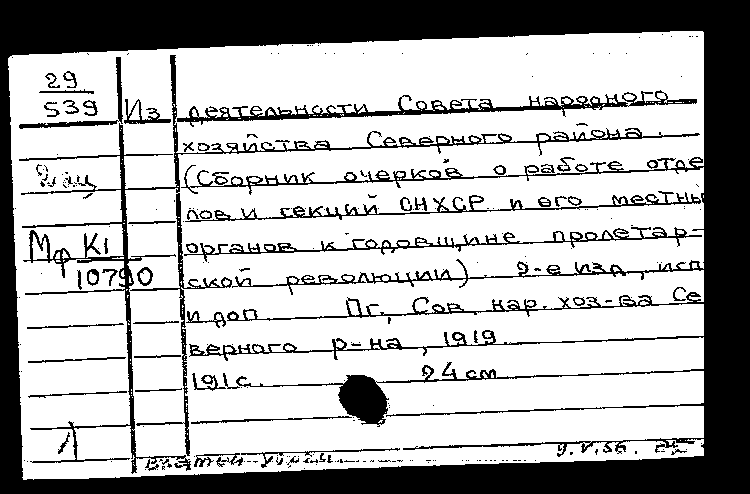 29
539 Из деятельности Совета народного
хозяйства Северного района.
(Сборник очерков о работе отде
лов и секций СНХСР и его местны
Мф К1 органов к годовщине пролетар-
10790 ской революции) 2-е изд, исп
и доп Пг., Сов. нар. хоз-ва Се
верного р-на, 1919.
191 с. 24 см
9.V.56.